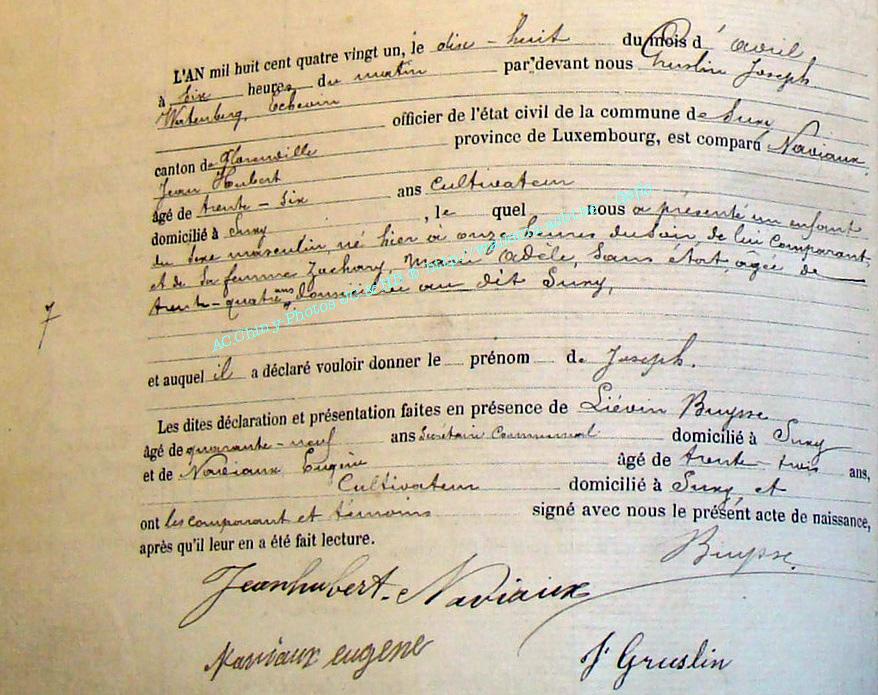 L'AN mil huit cent quatre vingt un, le dix-huit du mois d' avril
à six heures du matin par devant nous Gruslin Joseph
Echevin
officier de l'état civil de la commune de Suxy
canton de Florenville province de Luxembourg, est comparu Naviaux,
Jean Hubert
âgé de trente-six ans cultivateur
domicilié à Suxy, le quel nous a présenté un enfant
du sexe masculin, né hier à onze heures du soir, de lui comparant,
et de sa femme Zachary, Marie Adèle, sans état, âgée de
trente-quatre ans domiciliée au dit Suxy,
7
et auquel il a déclaré vouloir donner le prénom de Joseph.
Les dites déclaration et présentation faites en présence de Liévin Buysse
âgé de quarante-neuf ans Secrétaire Communal domicilié à Suxy
et de Naviaux Eugène âgé de trente-trois ans,
Cultivateur domicilié à Suxy, et
ont les comparant et témoins signé avec nous le présent acte de naissance,
après qu'il leur en a été fait lecture.
Buysse.
Jeanhubert-Naviaux
Naviaux eugene
J Gruslin
AC Chiny Photos